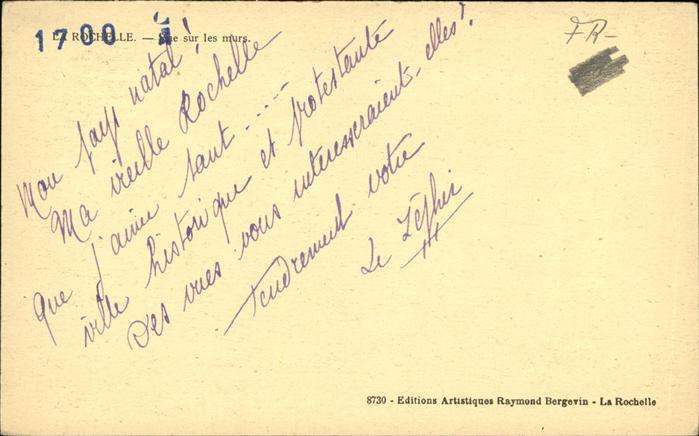 1700 1
LA ROCHELLE. — Rue sur les murs.
FR-
Mon pays natal!
Ma vieille Rochelle
que j'aime tant.....
ville historique et protestante
Des vues vous intéresseraient-elles?
tendrement votre
Le Zéphir
8730 - Editions Artistiques Raymond Bergevin - La Rochelle